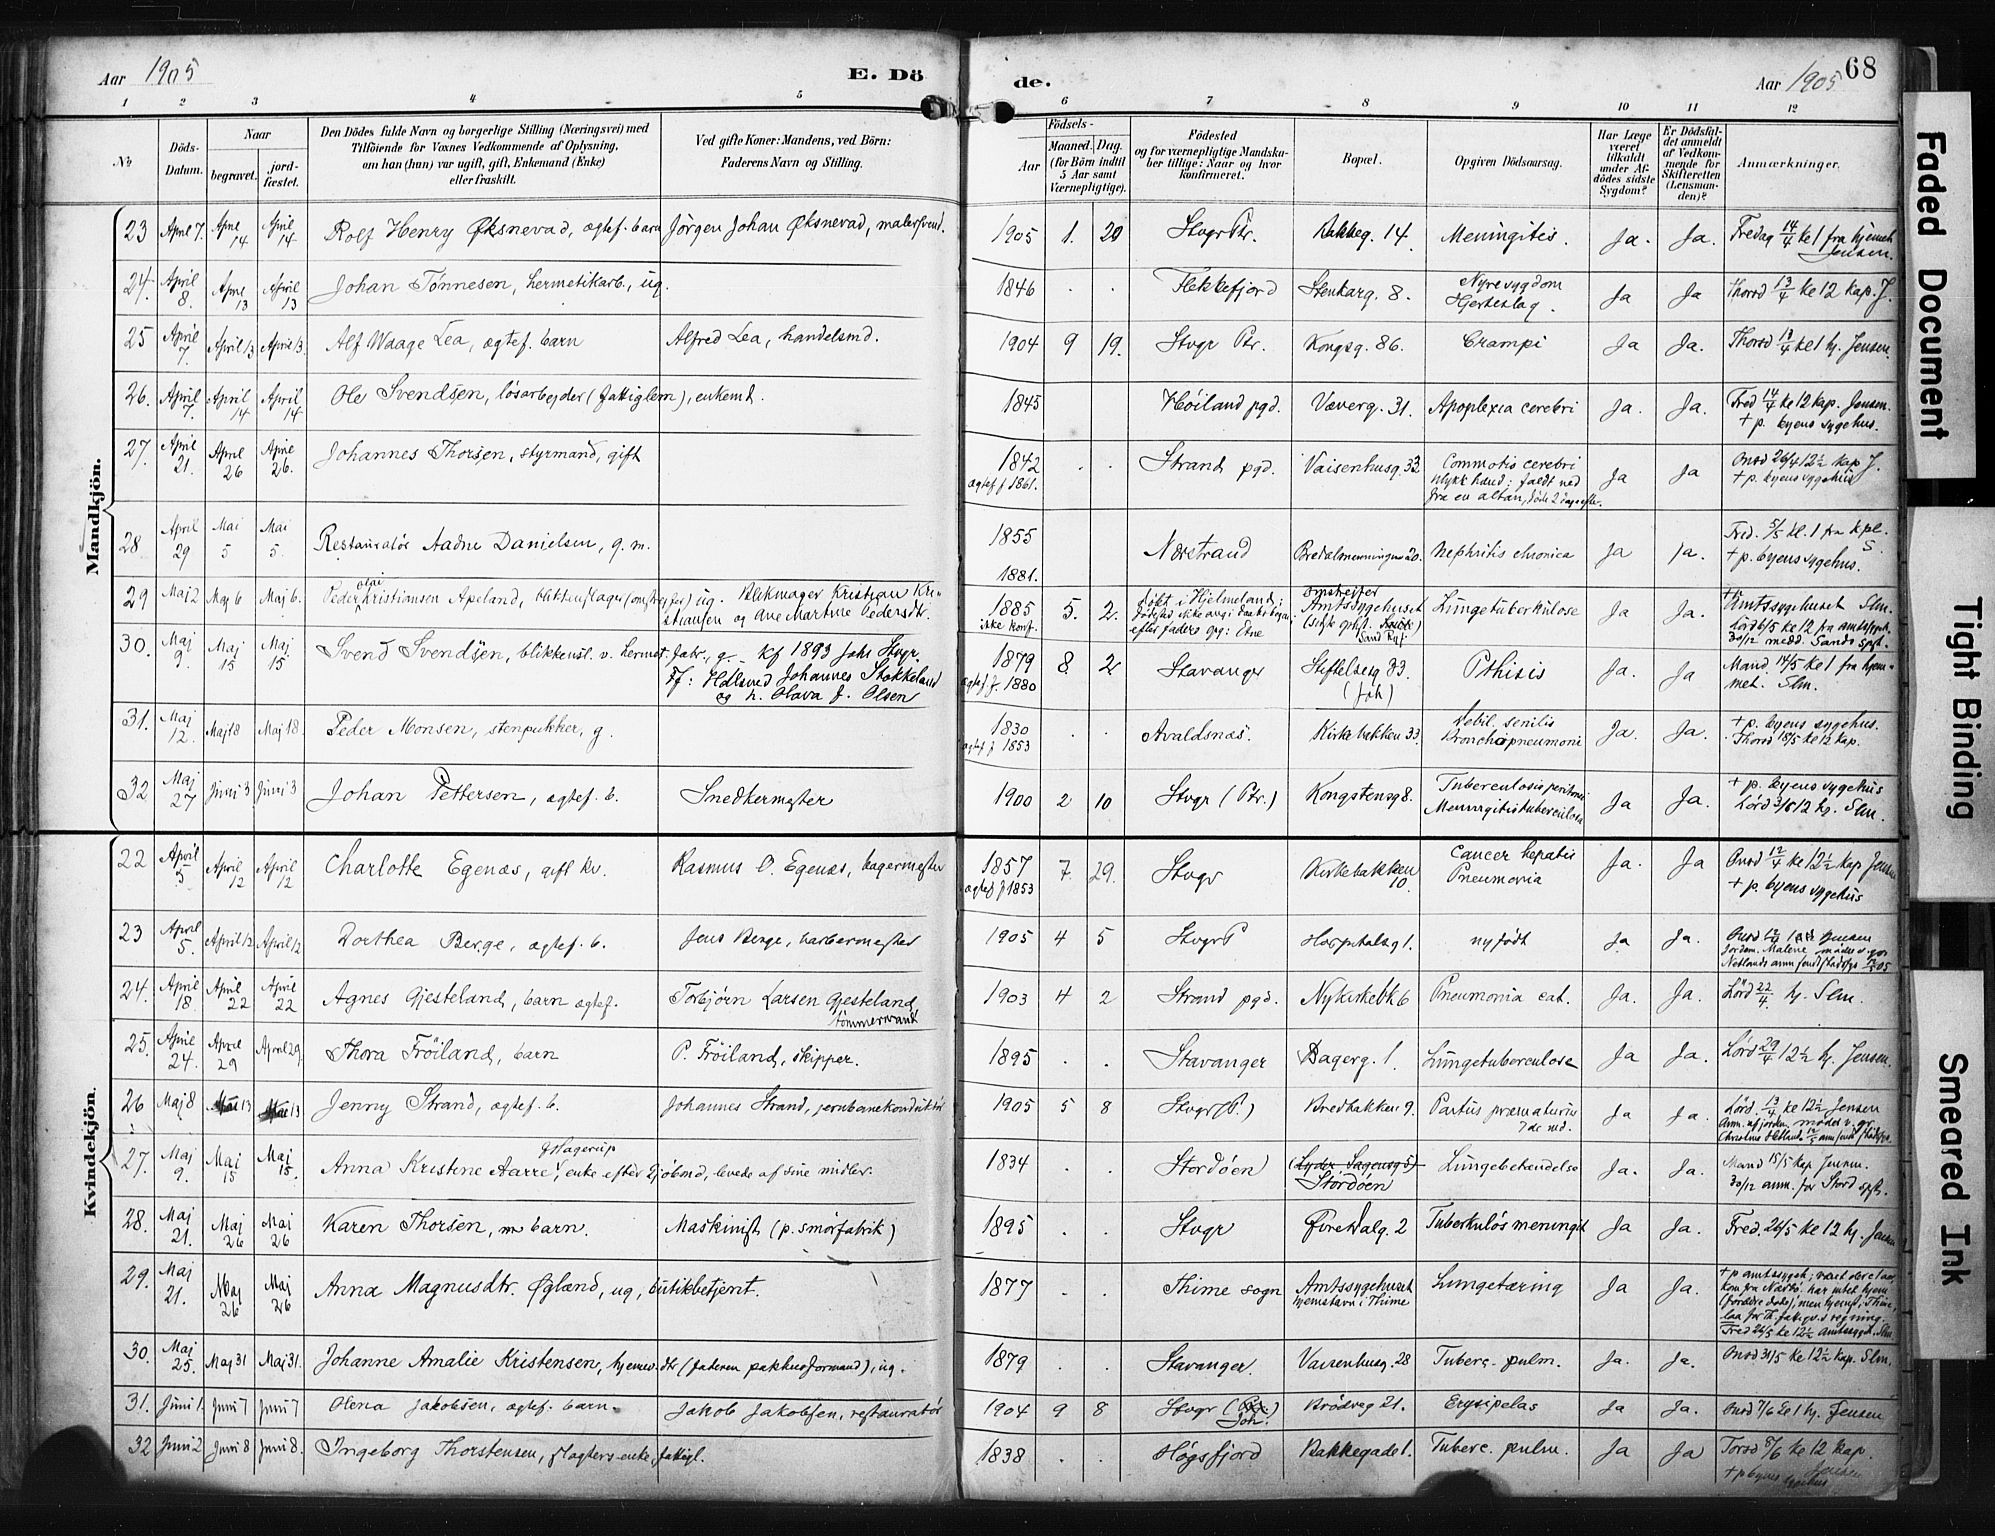 Aar 1905 E. Dö
1 2 3 4 5
№ Döds-Datum. Naar begravet. jord-fæstet. Den Dödes fulde Navn og borgerlige Stilling (Næringsvei) med Tilföiende for Voxnes Vedkommende af Oplysning, om han (hun) var ugift, gift, Enkemand (Enke) eller fraskilt. Ved gifte Koner: Mandens, ved Börn: Faderens Navn og Stilling.
Mandkjön.
23 April 7. April 14 April 14 Rolf Henry Øksnevad, ægtef. barn Jörgen Johan Øksnevad, malersvend.
24. April 8. April 13 April 13 Johan Tönnesen, hermetikarb., ug.
25 April 7. April 13 April 13. Alf Waage Lea, ægtef. barn Alfred Lea, handelsmd.
26. April 7. April 14 April 14 Ole Svendsen, lösarbejder (fattiglem), enkemd.
27. April 21. April 26 April 26. Johannes Thorsen, styrmand, gift
28 April 29 Mai 5 Mai 5. Restauratör Aadne Danielsen, g. m.
29 Maj 2 Maj 6 Maj 6. Peder olai Kristiansen Apeland, blikkenslager (omstreifer) ug. Blikmager Kristian Kristiansen og Ane Martine Pedersdtr.
30. Maj 9. Maj 15 Maj 15 Svend Svendsen, blikkensl. v. hermet. fabr., g. Kf 1893 Joh Stvgr.
Ff: Hallsved Johannes Stokkeland
og h. Olava f. Olsen
31. Maj 12. Maj 18 Maj 18. Peder Monsen, stenpukker, g.
32 Maj 27 Juni 3 Juni 3 Johan Pettersen, ægtef. b. Snedkermester
Kvindekjön.
22 April 5 April 12 April 12 Charlotte Egenæs, gift kv. Rasmus O. Egenæs, bagermester
23 April 5. April 12 April 12 Dorthea Berge, ægtef. b. Jens Berge, barbermester
24. April 18 April 22 April 22 Agnes Gjesteland, barn ægtef. Torbjörn Larsen Gjesteland, tömmermand
25. April 24. April 29 April 29. Thora Fröiland, barn P. Fröiland, skipper.
26 Maj 8 Mai 13 Mai 13 Jenny Strand, ægtef. b. Johannes Strand, jernbanekonduktör
27. Maj 9. Maj 15 Maj 15. Anna Kristine Aarre f. Hagerup, enke efter Sjöbmd, levede af sine midler.
28. Maj 21. Maj 26 Maj 26 Karen Thorsen, barn. Maskinist (p. smörfabrik)
29. Maj 21. Maj 26 Maj 26 Anna Magnusdtr. Øgland, ug, butikbetjent.
30. Maj 25. Maj 31 Maj 31. Johanne Amalie Kristensen, hjemv. dtr (faderen pakhusformand), ug.
31. Juni 1. Juni 7 Juni 7 Olena Jakobsen, ægtef. barn. Jakob Jakobsen, restauratör
32 Juni 2 Juni 8 Juni 8. Ingeborg Thorstensen, slagters enke, fattigl.
de. Aar 1905 68
6 7 8 9 10 11 12
Födsels- Aar Maaned. Dag. (for Börn indtil 5 Aar samt Værnepligtige). Födested og for værnepligtige Mandskaber tillige: Naar og hvor konfirmeret. Bopæl. Opgiven Dödsaarsag. Har Læge været tilkaldt under Afdödes sidste Sygdom? Er Dödsfaldet anmeldt af Vedkommende for Skifteretten (Lensmanden)? Anmærkninger.
1905 1. 20 Stvgr Ptr. Bakkeg. 14. Meningitis. Ja. Ja. Fredag 14/4 kl 1 fra hjemmet Jensen.
1846 . . Flekkefjord Stenkarg. 8. Nyresygdom Hjerteslag. Ja Ja Thorsd 13/4 kl 12 kap. J.
1904 9 19. Stvgr Ptr. Kongsg. 86. Crampi Ja Ja. Thorsd 13/4 kl 1 hj. Jensen.
1845 Höiland pgd. Væverg. 31. Apoplexia cerebri Ja. Ja. Fred 14/4 kl 12 kap. Jensen. + p. byens sygehus.
1842 ægtef f 1861. . . Strand pgd. Vaisenhusg. 32 Commotio cerebri ulykkhænd: faldt ned fra en altan, döde 2 dage efter. Ja Ja Onsd 26/4 12½ kap J. + p. byens sygehus
1855 1881. Nærstrand Bredalmenningen 20. Nephritis chronica Ja Ja. Fred. 5/5 kl. 1 fra kpl. S. + p. byens sygehus.
1885 ikke konf. 5. 2. Döbt i Hjelmeland; omstreifer Amtssygehuset Lungetuberkulose Ja Ja. + Amtssygehuset Slm. Lörd 6/5 kl 12 fra amtssygeh. 30/12 medd. Sands spr.
1879 ægtef f. 1880 8. 2. Stavanger Stiftelsesg 33 (Joh) Pthisis Ja. Ja Mand. 14/5 kl 1 fra hjemmet. Slm.
1830 ægtef f 1853 . . Avaldsnæs. Kirkebakken 33. Debil. senilis Bronchopneumoni Ja. Ja. + p. byens sygehus. Thorsd 18/5 kl 12 kap.
1900 2 10 Stvgr (Ptr.) Kongstensg 8. Tuberculosis peritonei Meningitis tuberculosa Ja Ja. + p. byens sygehus Lörd 3/6 12 hj. Slm.
1857 ægtef f 1853 7. 29. Stvgr Kirkebakken 10. Cancer hepatis Pneumonia Ja. Ja Onsd 12/4 kl 12½ kap Jensen + p. byens sygehus
1905 4 5 Stvgr P Hospitalsg 1. nyfödt Ja Ja.
1903 4 2 Strand pgd. Nykirkebk 6 Pneumonia cat. Ja. Ja. Lörd 22/4. hj. Slm.
1895 . . Stavanger Bagerg. 1. Lungetuberculose Ja Ja. Lörd 29/4 12½ hj. Jensen.
1905 5 8 Stvgr (P.) Bredbakken 9. Partus præmaturus 7de md. Ja Ja. Lörd. 13/4 kl 12½ Jensen
1834 . . Stordöen (Lyder Sagensg 5) Stordöen Lungebetændelse Ja. Ja. Mand 15/5 kap Jensen. 30/12 anm. for Stord spr.
1895 . . Stvgr Øvre Dalg. 2 Tuberkulös meningit Ja Ja. Fred. 26/5 kl 12 hj. Jensen
1877 . . Thime sogn Amtssygehuset hjemstavn i Thime Lungetæring Ja Ja. Fred 26/5 kl 12½ Amtssygeh. Slm
1879 Stavanger. Vaisenhusg. 28 Tuberc. pulm. Ja. Ja. Onsd 31/5 kl 12½ kap. Slm.
1904 9 8 Stvgr (Joh.) Brödreg 21. Erysipelas Ja Ja. Onsd 7/6 kl 1 hj. Jensen
1838 . . Högsfjord Bakkegade 1. Tuberc. pulm. Ja Ja Torsd 8/6 kl 12 kap. Jensen + p byens sygehus
Faded Document
Tight Binding
Smeared Ink